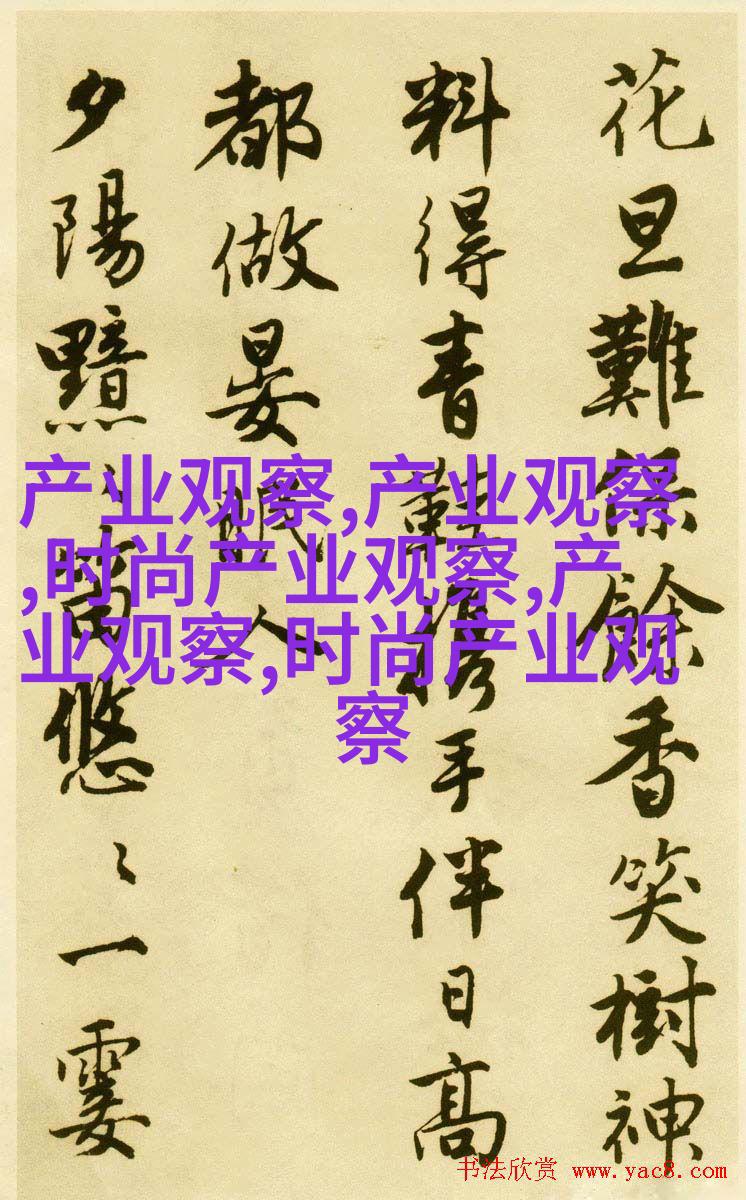 花旦難餘香笑樹神
料得青鞋携手伴日高
都做晏眠人
夕陽黯〻笛悠〻一霎
产业观察,产业观察
,时尚产业观察,产
业观察,时尚产业观
察
书法欣赏 www.yac8.com